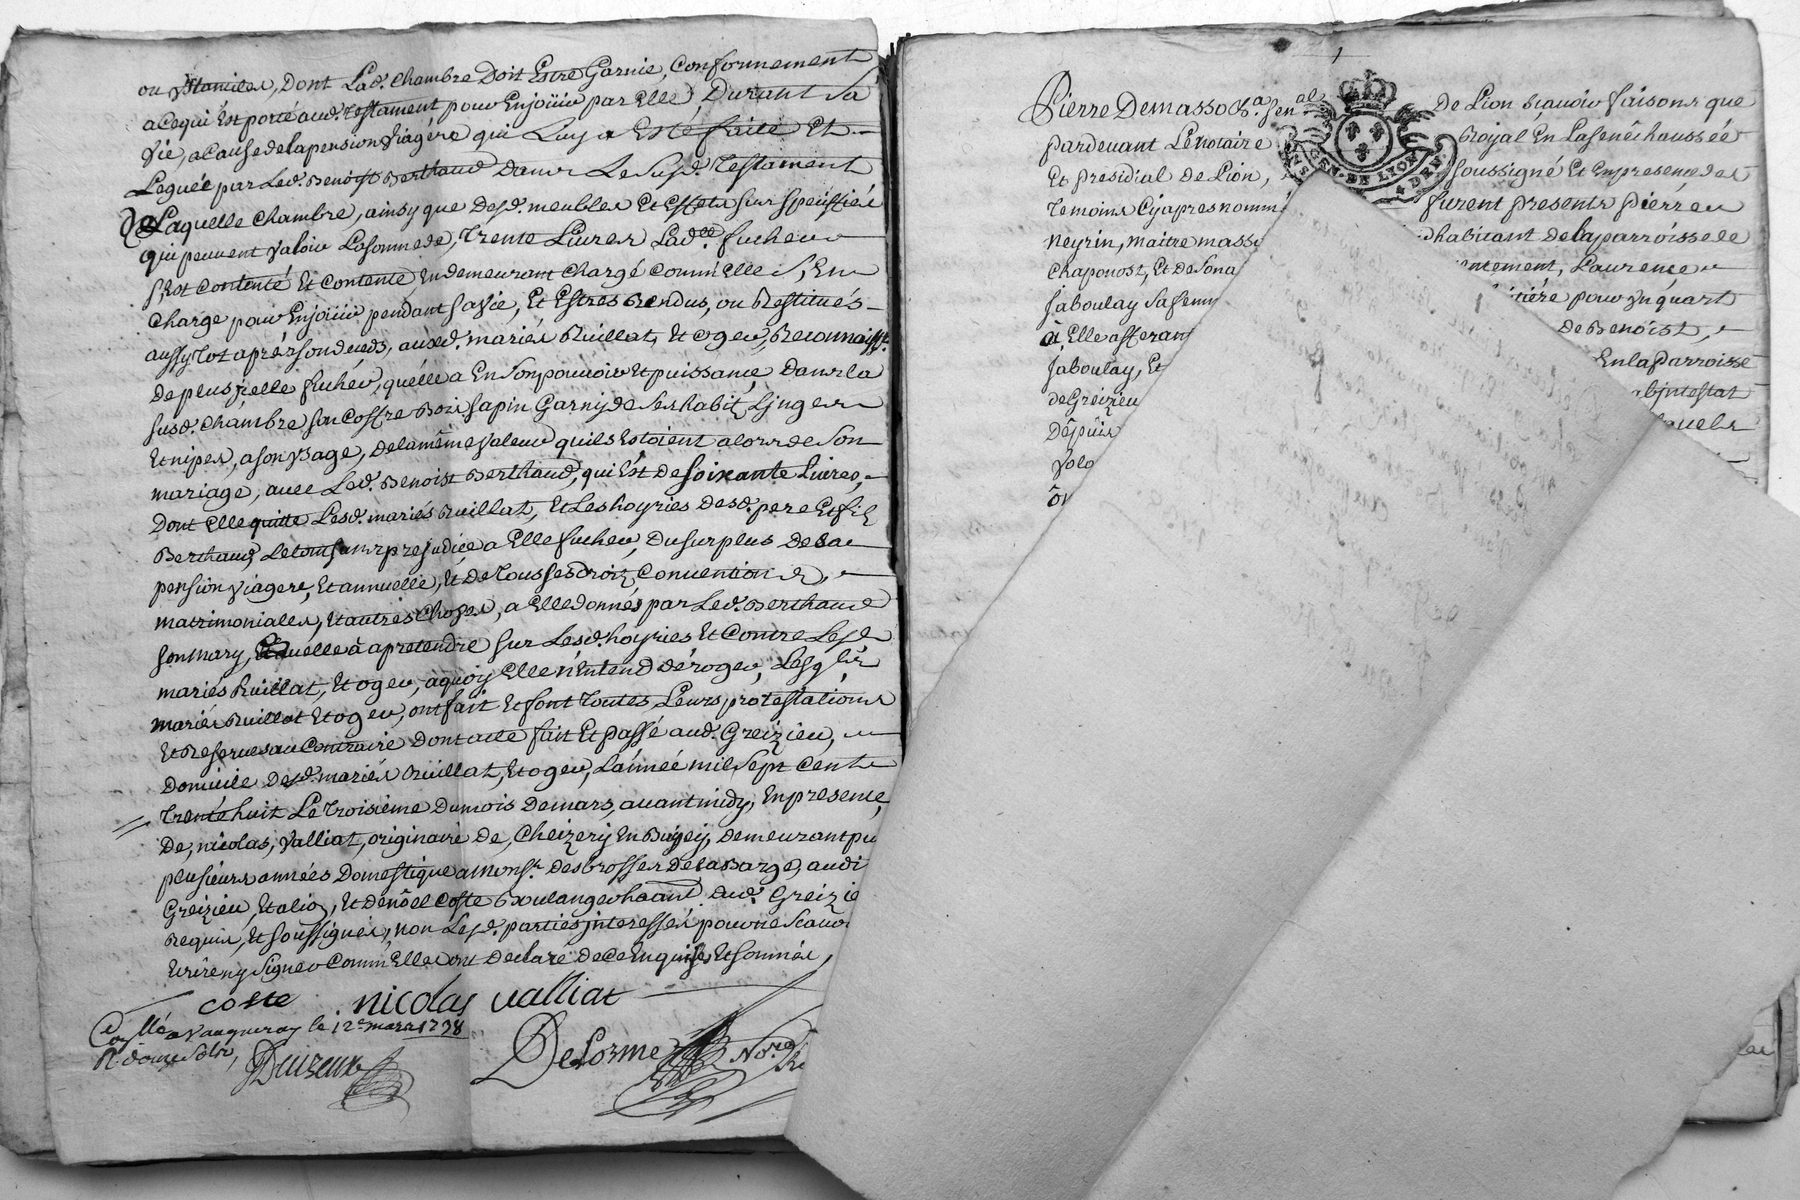 ou Ustancilles, Dont Lad. Chambre Doit Estre Garnie, Conformement
a Ce qui Est porté aud. Testament pour Enjoüir par Elle, Durant Sa
Vie, a Cause de la pension Viagére qui Luy a Esté faitte Et
Leguée par Led. Benoist Berthaud Dans Le Susd. Testament
Laquelle Chambre, ainsy que Desd. meubles Et Effets Sus Speciffiés
qui peuvent Valoir La Somme de, Trente Livres Lad.lle fucheu
S'Est Contenté Et Contente En demeurant Chargé Comm'Elle S'En
Charge pour Enjoüir pendant Sa Vie, Et Estres Rendus, ou Restitués
aussy Tot aprés son deceds, auxd. mariés Ruillat, Et oger, Reconnaiss.t
De plus jcelle fucheu, qu'elle a En Son pouvoir Et puissance, Dans la
Susd. Chambre Son Coffre Bois Sapin Garny de Ses habits Linges
Et nipes, a son Usage, De la même Valeur qu'ils Estoient alors de Son
mariage, avec Led. Benoist Berthaud, qui Est De Soixante Livres,
Dont Elle quitte Lesd. mariés Ruillat, Et Les hoyries Desd. pere Et fils
Berthaud Le tout Sans prejudice a Elle fucheu, Du Surplus De La
pension Viagere, Et annuelle, Et De Tous Ses Droits Conventions,
matrimoniales, Et autres Choses, a Elle Donnés par Led. Berthaud
Son mary, Et qu'elle à a pretendre Sur Lesd. hoyries Et Contre Lesd.
mariés Ruillat, Et oger, a quoy Elle n'Entend déroger, Lesqls
mariés Ruillat Et oger, ont fait Et font Toutes Leurs protestations
Et Reserves au Contraire Dont acte fait Et passé aud. Greizieu,
Domicile Desd. mariés Ruillat, Et oger, L'année mil Sept Cents
Trente huit Le Troisième Du mois De mars, avant midy, En presence,
De, nicolas, Valliat, originaire De, Cheizery En Bugey, Demeurant
plusieurs années Domestique a Mons.r Desbrosses De La Barge, audi
Greizieu, Et alio, Et De nôel Coste Boulanger hâant Aud. Greizie
Requis, Et Soussignés, non Lesd. parties jnteressés pour ne Scavoi
Ecrire ny Signer Comm'Elles ont Declaré De Ce Enquises, Et Sommés,
coste nicolas valliat
a vaugneray le 12e mars 1738
R. douze Sols,
DeLorme No.re
Pierre Demasso Sen.al De Lion Sçauoir faisons que
pardeuant Le Notaire Royal En La Senêchaussée
Et Presidial de Lion, Soussigné Et En presence des
Temoins Cy apres nomm furent presents Pierre
Neyrin, maitre mass habitant De la parroisse de
Chaponost, Et De Son a entement, Laurence
Jaboulay Sa femm pour Un quart
à Elle afferan De Benoist,
Jaboulay, Et En la Parroisse
de Greizieu abjntestat
Dêpuis quels
Volo